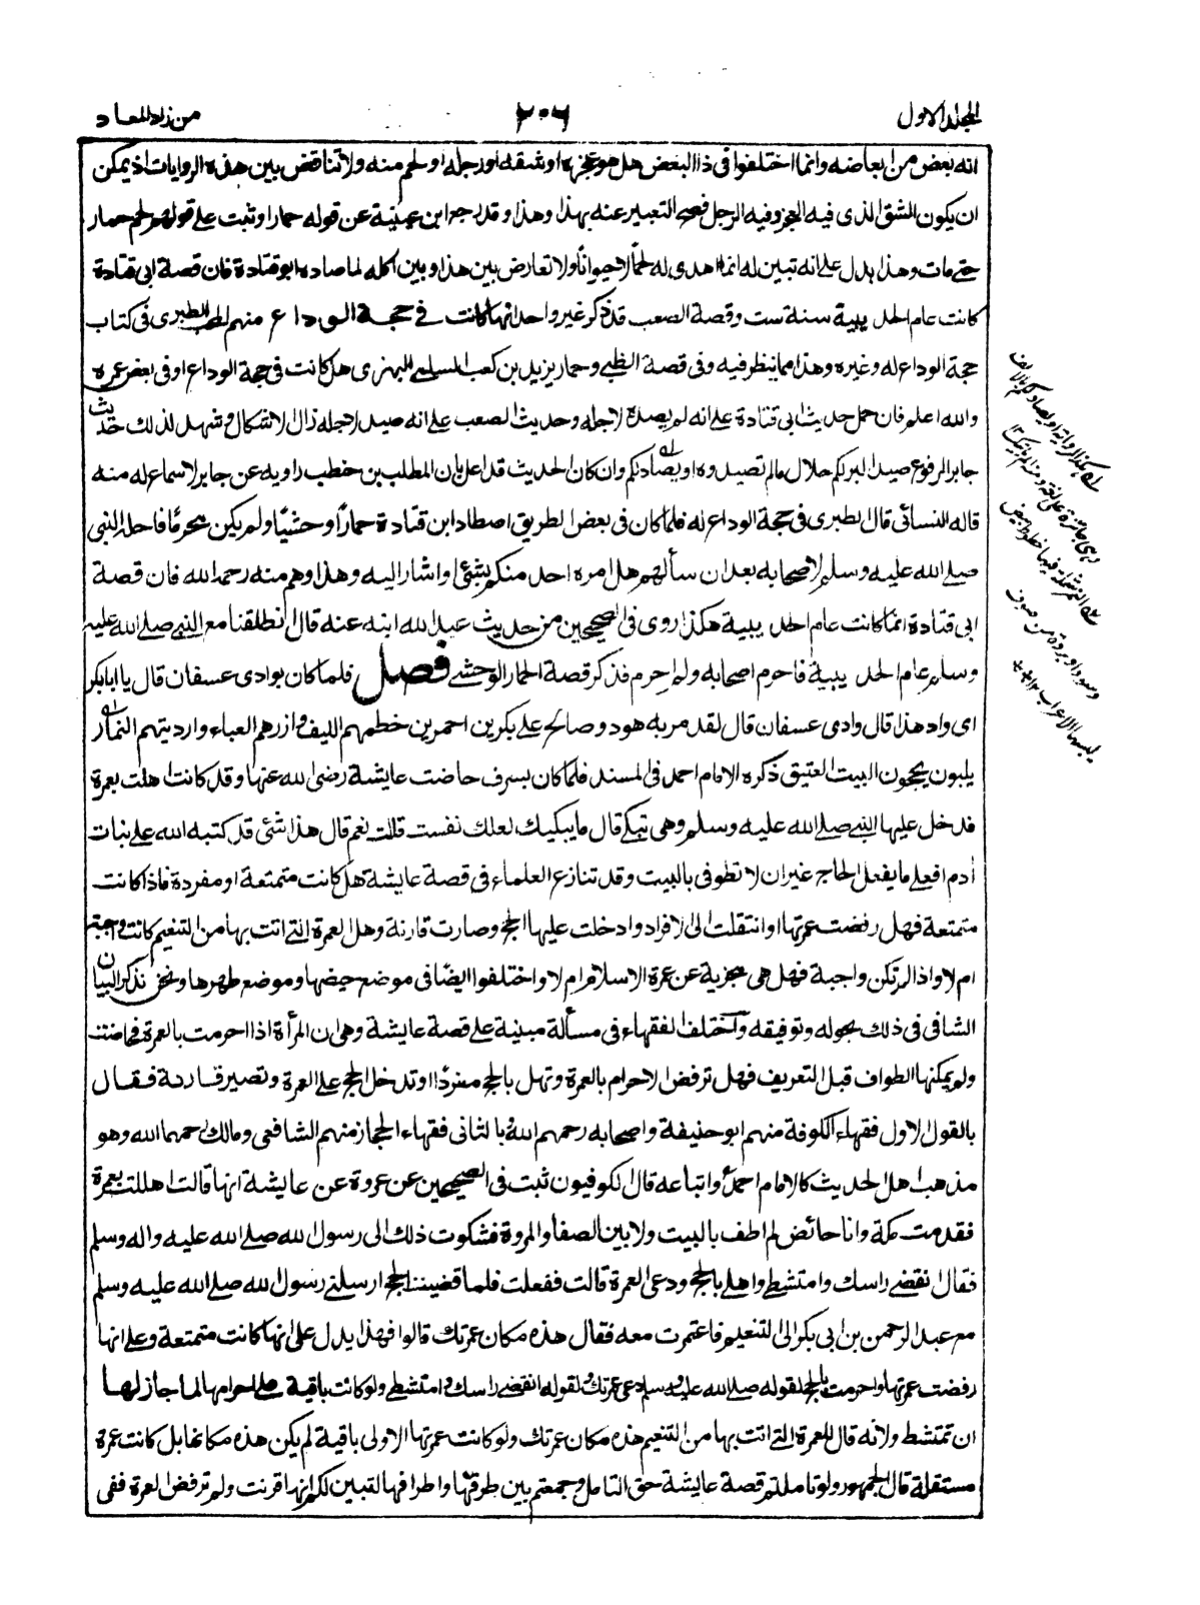 المجلد الاول
٢٠٦
من زاد المعاد
انه بعض من ابعاضه وانما اختلفوا فى ذا البعض هل هو عجزه او شقه او رجله او لحم منه ولا تناقض بين هذه الروايات اذ يمكن
ان يكون الشق الذى فيه العجز وفيه الرجل فصح التعبير عنه بهذا وهذا وقد رجع ابن عيينة عن قوله حمارا وثبت على قوله لحم حمار
حتى مات وهذا يدل على انه تبين له انما اهدى له لحمًا لا حيوانًا ولا تعارض بين هذا وبين اكله لما صاده ابو قتادة فان قصة ابى قتادة
كانت عام الحديبية سنة ست وقصة الصعب قد ذكر غير واحد انها كانت فى حجة الوداع منهم المحب الطبرى فى كتاب
حجة الوداع له وغيره وهذا مما ينظر فيه وفى قصة الظبى وحمار يزيد بن كعب السلمى البهزى هل كانت فى حجة الوداع او فى بعض عمره
والله اعلم فان حمل حديث ابى قتادة على انه لم يصده لاجله وحديث الصعب على انه صيد لاجله زال الاشكال وشهد لذلك حديث
جابر المرفوع صيد البر لكم حلال ما لم تصيدوه او يصاد لكم وان كان الحديث قد اعل بان المطلب بن حنطب راويه عن جابر لا سماع له منه
قاله النسائى قال الطبرى فى حجة الوداع له فلما كان فى بعض الطريق اصطاد ابن قتادة حمارًا وحشيًا ولم يكن محرمًا فاحله النبى
صلى الله عليه وسلم لاصحابه بعد ان سألهم هل امره احد منكم بشئ او اشار اليه وهذا وهم منه رحمه الله فان قصة
ابى قتادة انما كانت عام الحديبية هكذا روى فى الصحيحين من حديث عبد الله ابنه عنه قال انطلقنا مع النبى صلى الله عليه
وسلم عام الحديبية فاحرم اصحابه ولم احرم فذكر قصة الحمار الوحشى فصل فلما كان بوادى عسفان قال يا ابا بكر
اى واد هذا قال وادى عسفان قال لقد مر به هود وصالح على بكرين احمرين خطمهم الليف وازرهم العباء وارديتهم النمار
يلبون يحجون البيت العتيق ذكره الامام احمد فى المسند فلما كان بسرف حاضت عايشة رضى الله عنها وقد كانت اهلت بعمرة
فدخل عليها النبى صلى الله عليه وسلم وهى تبكى قال ما يبكيك لعلك نفست قالت نعم قال هذا شئ قد كتبه الله على بنات
أدم افعلى ما يفعل الحاج غير ان لا تطوفى بالبيت وقد تنازع العلماء فى قصة عايشة هل كانت متمتعة او مفردة فاذا كانت
متمتعة فهل رفضت عمرتها او انتقلت الى الافراد وادخلت عليها الحج وصارت قارنة وهل العمرة التى اتت بها من التنعيم كانت واجبة
ام لا واذا لم تكن واجبة فهل هى مجزية عن عمرة الاسلام ام لا واختلفوا ايضًا فى موضع حيضها وموضع طهرها ونحن نذكر البيان
الشافى فى ذلك بحوله وتوفيقه واختلف الفقهاء فى مسألة مبنية على قصة عايشة وهى ان المرأة اذا احرمت بالعمرة فحاضت
ولم يمكنها الطواف قبل التعريف فهل ترفض الاحرام بالعمرة وتهل بالحج مفردًا او تدخل الحج على العمرة وتصير قارنة فقال
بالقول الاول فقهاء الكوفة منهم ابو حنيفة واصحابه رحمهم الله بالثانى فقهاء الحجاز منهم الشافعى ومالك رحمهما الله وهو
مذهب اهل الحديث كالامام احمد واتباعه قال الكوفيون ثبت فى الصحيحين عن عروة عن عايشة انها قالت اهللت بعمرة
فقدمت مكة وانا حائض لم اطف بالبيت ولا بين الصفا والمروة فشكوت ذلك الى رسول الله صلى الله عليه واله وسلم
فقال انقضى راسك وامتشطى واهلى بالحج ودعى العمرة قالت ففعلت فلما قضينا الحج ارسلنى رسول الله صلى الله عليه وسلم
مع عبد الرحمن بن ابى بكر الى التنعيم فاعتمرت معه فقال هذه مكان عمرتك قالوا فهذا يدل على انها كانت متمتعة وعلى انها
رفضت عمرتها واحرمت بالحج لقوله صلى الله عليه وسلم دعى عمرتك ولقوله انقضى راسك وامتشطى ولو كانت باقية على احرامها لما جاز لها
ان تمتشط ولانه قال للعمرة التى اتت بها من التنعيم هذه مكان عمرتك ولو كانت عمرتها الاولى باقية لم يكن هذه مكانها بل كانت عمرة
مستقلة قال الجمهور ولو تاملتم قصة عايشة حق التامل وجمعتم بين طرقها واطرافها لتبين لكم انها قرنت ولم ترفض العمرة ففى